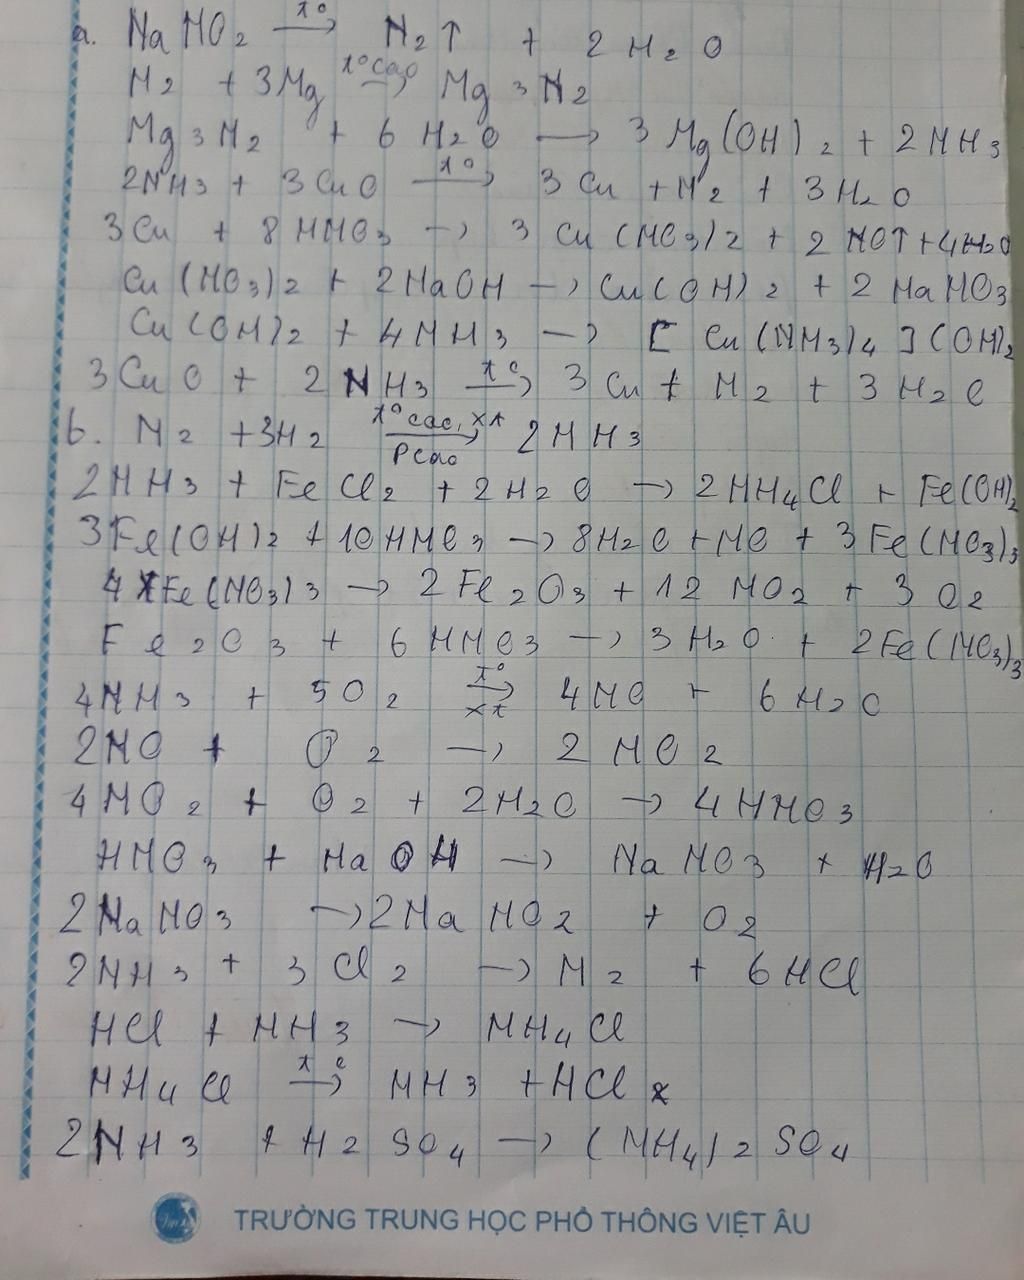 a. NaNO2 t°→ N2↑ + 2H2O
N2 + 3Mg t°cao→ Mg3N2
Mg3N2 + 6H2O → 3Mg(OH)2 + 2NH3
2NH3 + 3CuO t°→ 3Cu + N2 + 3H2O
3Cu + 8HNO3 → 3Cu(NO3)2 + 2NO↑ + 4H2O
Cu(NO3)2 + 2NaOH → Cu(OH)2 + 2NaNO3
Cu(OH)2 + 4NH3 → [Cu(NH3)4](OH)2
3CuO + 2NH3 t°→ 3Cu + N2 + 3H2O
b. N2 + 3H2 t°cao, xt→ Pcao 2NH3
2NH3 + FeCl2 + 2H2O → 2NH4Cl + Fe(OH)2
3Fe(OH)2 + 10HNO3 → 8H2O + NO + 3Fe(NO3)3
4Fe(NO3)3 → 2Fe2O3 + 12NO2 + 3O2
Fe2O3 + 6HNO3 → 3H2O + 2Fe(NO3)3
4NH3 + 5O2 t°→ xt 4NO + 6H2O
2NO + O2 → 2NO2
4NO2 + O2 + 2H2O → 4HNO3
HNO3 + NaOH → NaNO3 + H2O
2NaNO3 → 2NaNO2 + O2
2NH3 + 3Cl2 → N2 + 6HCl
HCl + NH3 → NH4Cl
NH4Cl t°→ NH3 + HCl
2NH3 + H2SO4 → (NH4)2SO4
TRƯỜNG TRUNG HỌC PHỔ THÔNG VIỆT ÂU